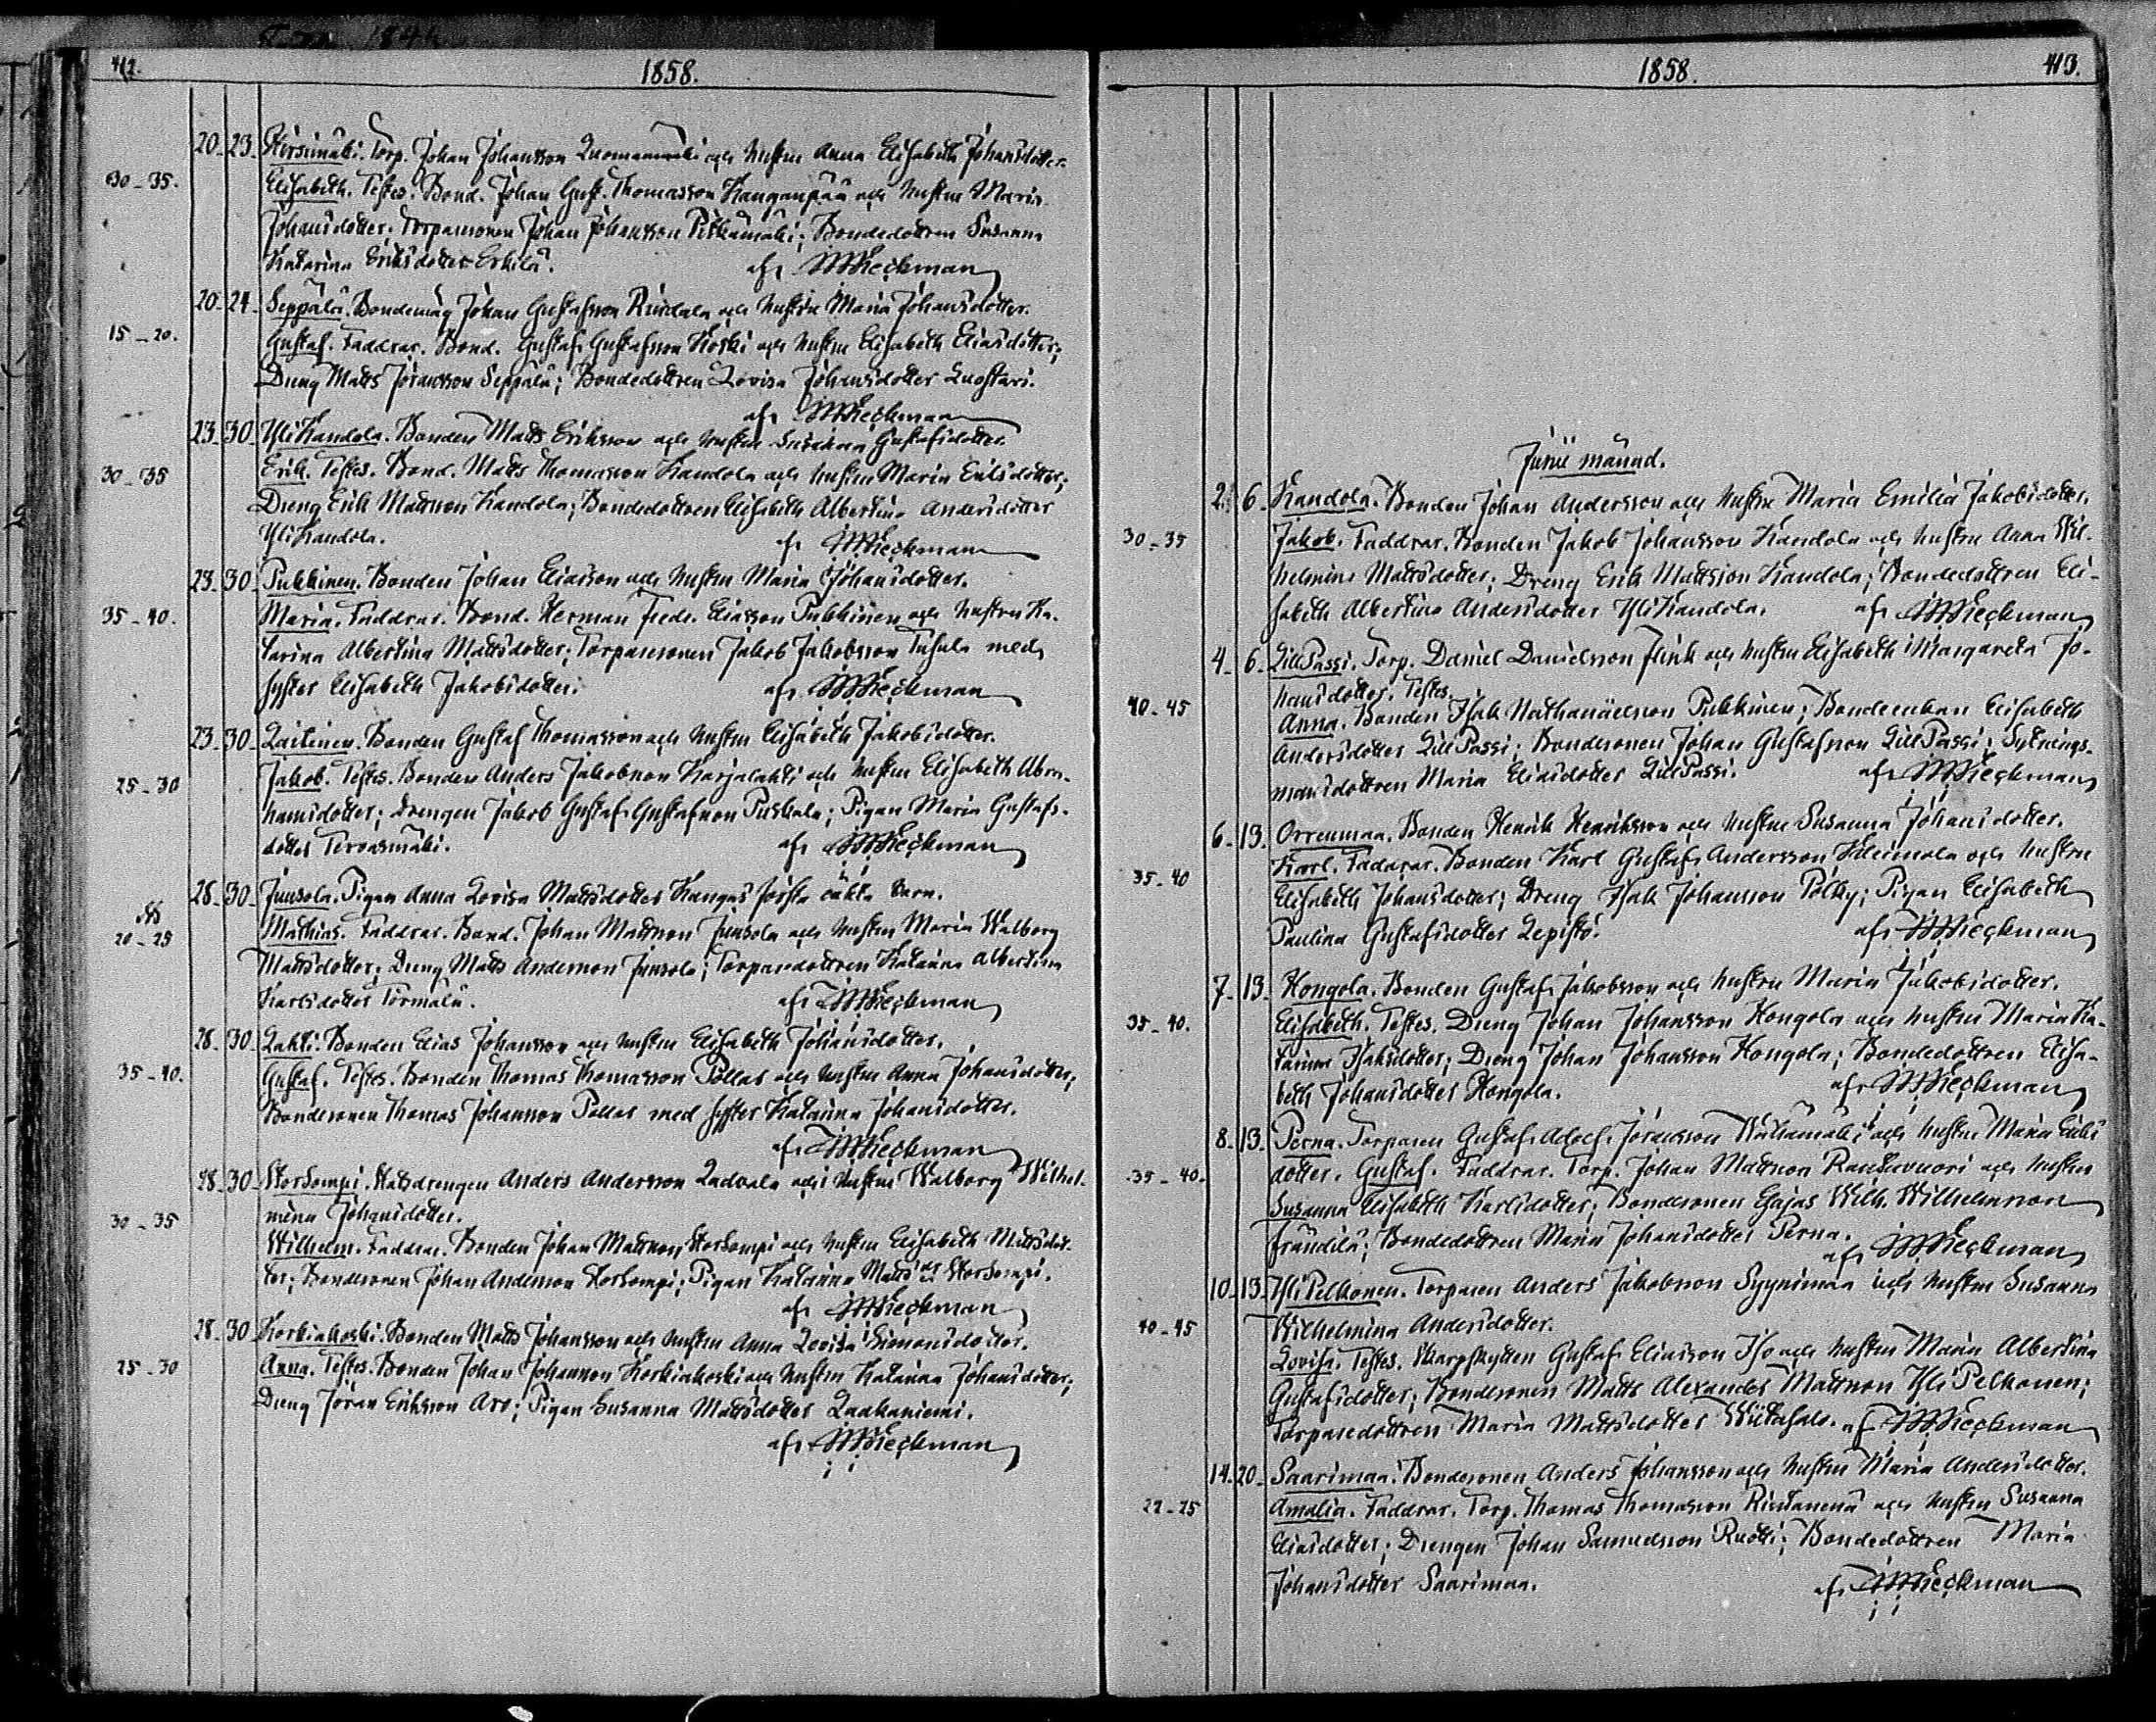 412.
1858.
20. 23. Hirsimäki. Torp. Johan Johansson Luomanmäki och hustru Anna Elisabeth Johansdotter.
30-35. Elisabeth. Testes. Bond. Johan Gust. Thomasson Kanganpää och hustru Maria
Johansdotter. Torparesonen Johan Johansson Pitkämäki; Bondedottren Susanna
Katarina Eriksdotter Erkilä. af
20. 24. Seppälä. Bondemåg Johan Gustafsson Rindala och hustru Maria Johansdotter.
15-20. Gustaf. Faddrar. Bond. Gustaf Gustafsson Koski och hustru Elisabeth Eliasdotter;
Dreng Matts Jöransson Seppälä; Bondedottren Lovisa Johansdotter Luostari.
af
23. 30. YliKandola. Bonden Matts Eriksson och hustru Susanna Gustafsdotter.
30-35 Erik. Testes. Bond. Matts Thomasson Kandola och hustru Maria Eriksdotter;
Dreng Erik Mattsson Kandola; Bondedottren Elisabeth Albertina Andersdotter
YliKandola. af
23. 30. Pukkinen. Bonden Johan Eliasson och hustru Maria Johansdotter.
35-40. Maria. Faddrar. Bond. Herman Fredr. Eliasson Pukkinen och hustru Ka-
tarina Albertina Mattsdotter; Torparesonen Jakob Jakobsson Tusula med
syster Elisabeth Jakobsdotter. af
23. 30. Laitinen. Bonden Gustaf Thomasson och hustru Elisabeth Jakobsdotter.
25-30 Jakob. Testes. Bonden Anders Jakobsson Karjalahti och hustru Elisabeth Abra-
hamsdotter; Drengen Jakob Gustaf Gustafsson Puskala; Pigan Maria Gustafs-
dotter Tervasmäki. af
28. 30. Junsola. Pigan Anna Lovisa Mattsdotter Kangas första oäkta barn.
20-25 Mathias. Faddrar. Bond. Johan Mattsson Junsola och hustru Maria Walborg
Mattsdotter; Dreng Matts Andersson Junsola; Torparedottren Katarina Albertina
Karlsdotter Törmälä. af
28. 30. Lahti. Bonden Elias Johansson och hustru Elisabeth Johansdotter.
35-40. Gustaf. Testes. Bonden Thomas Thomasson Pollas och hustru Anna Johansdotter;
Bondesonen Thomas Johansson Pollas med syster Katarina Johansdotter.
af
28. 30. StorSompi. Statsdrengen Anders Andersson Ladvala och hustru Walborg Wilhel-
mina Johansdotter.
30-35 Wilhelm. Faddrar. Bonden Johan Mattsson StorSompi och hustru Elisabeth Mattsdot-
ter; Bondesonen Johan Andersson StorSompi; Pigan Katarina Matts dr StorSompi.
af
28. 30. Korkiakoski. Bonden Matts Johansson och hustru Anna Lovisa Simonsdotter.
25-30 Anna. Testes. Bonden Johan Johansson Korkiakoski och hustru Katarina Johansdotter;
Dreng Jöran Eriksson Aro; Pigan Susanna Mattsdotter Laakaniemi.
af
1858.
413.
Junii månad.
2. 6. Kandola. Bonden Johan Andersson och hustru Maria Emilia Jakobsdotter.
30-35 Jakob. Faddrar. Bonden Jakob Johansson Kandola och hustru Anna Wil-
helmina Mattsdotter; Dreng Erik Mattsson Kandola; Bondedottren Eli-
sabeth Albertina Andersdotter YliKandola. af
4. 6. LillPassi. Torp. Daniel Danielsson Flink och hustru Elisabeth Margareta Jo-
hansdotter. Testes.
40-45 Anna. Bonden Isak Nathanaelsson Pukkinen; Bondeenkan Elisabeth
Andersdotter LillPassi; Bondesonen Johan Gustafsson LillPassi; Sytnings-
mansdottren Maria Eliasdotter LillPassi. af
6. 13. Orrenmaa. Bonden Henrik Henriksson och hustru Susanna Johansdotter.
35-40 Karl. Faddrar. Bonden Karl Gustaf Andersson Kleimola och hustru
Elisabeth Johansdotter; Dreng Isak Johansson Pölky; Pigan Elisabeth
Paulina Gustafsdotter Lepistö. af
7. 13. Hongola. Bonden Gustaf Jakobsson och hustru Maria Jakobsdotter.
35-40. Elisabeth. Testes. Dreng Johan Johansson Hongola och hustru Maria Ka-
tarina Isaksdotter; Dreng Johan Johansson Hongola; Bondedottren Elisa-
beth Johansdotter Hongola. af
8. 13. Perna. Torparen Gustaf Adolf Jöransson och hustru Maria Eriks
35-40. dotter. Gustaf. Faddrar. Torp. Johan Mattsson Rantavuori och hustru
Susanna Elisabeth Karlsdotter; Bondesonen Esajas Wilh. Wilhelmsson
Frändilä; Bondedottren Maria Johansdotter Perna. af
10. 13. YliPelkonen. Torparen Anders Jakobsson Syynimaa och hustru Susanna
40-45 Wilhelmina Andersdotter.
Lovisa. Testes. Skarpskytten Gustaf Eliasson Iso och hustru Maria Albertina
Gustafsdotter; Bondesonen Matts Alexander Mattsson YliPelkonen;
Torparedottren Maria Mattsdotter Wiitasalo. af
14. 20. Saarimaa. Bondesonen Anders Johansson och hustru Maria Andersdotter.
22-25 Amalia. Faddrar. Torp. Thomas Thomasson Rintanenä och hustru Susanna
Eliasdotter; Drengen Johan Samuelsson Ruotti; Bondedottren Maria
Johansdotter Saarimaa. af